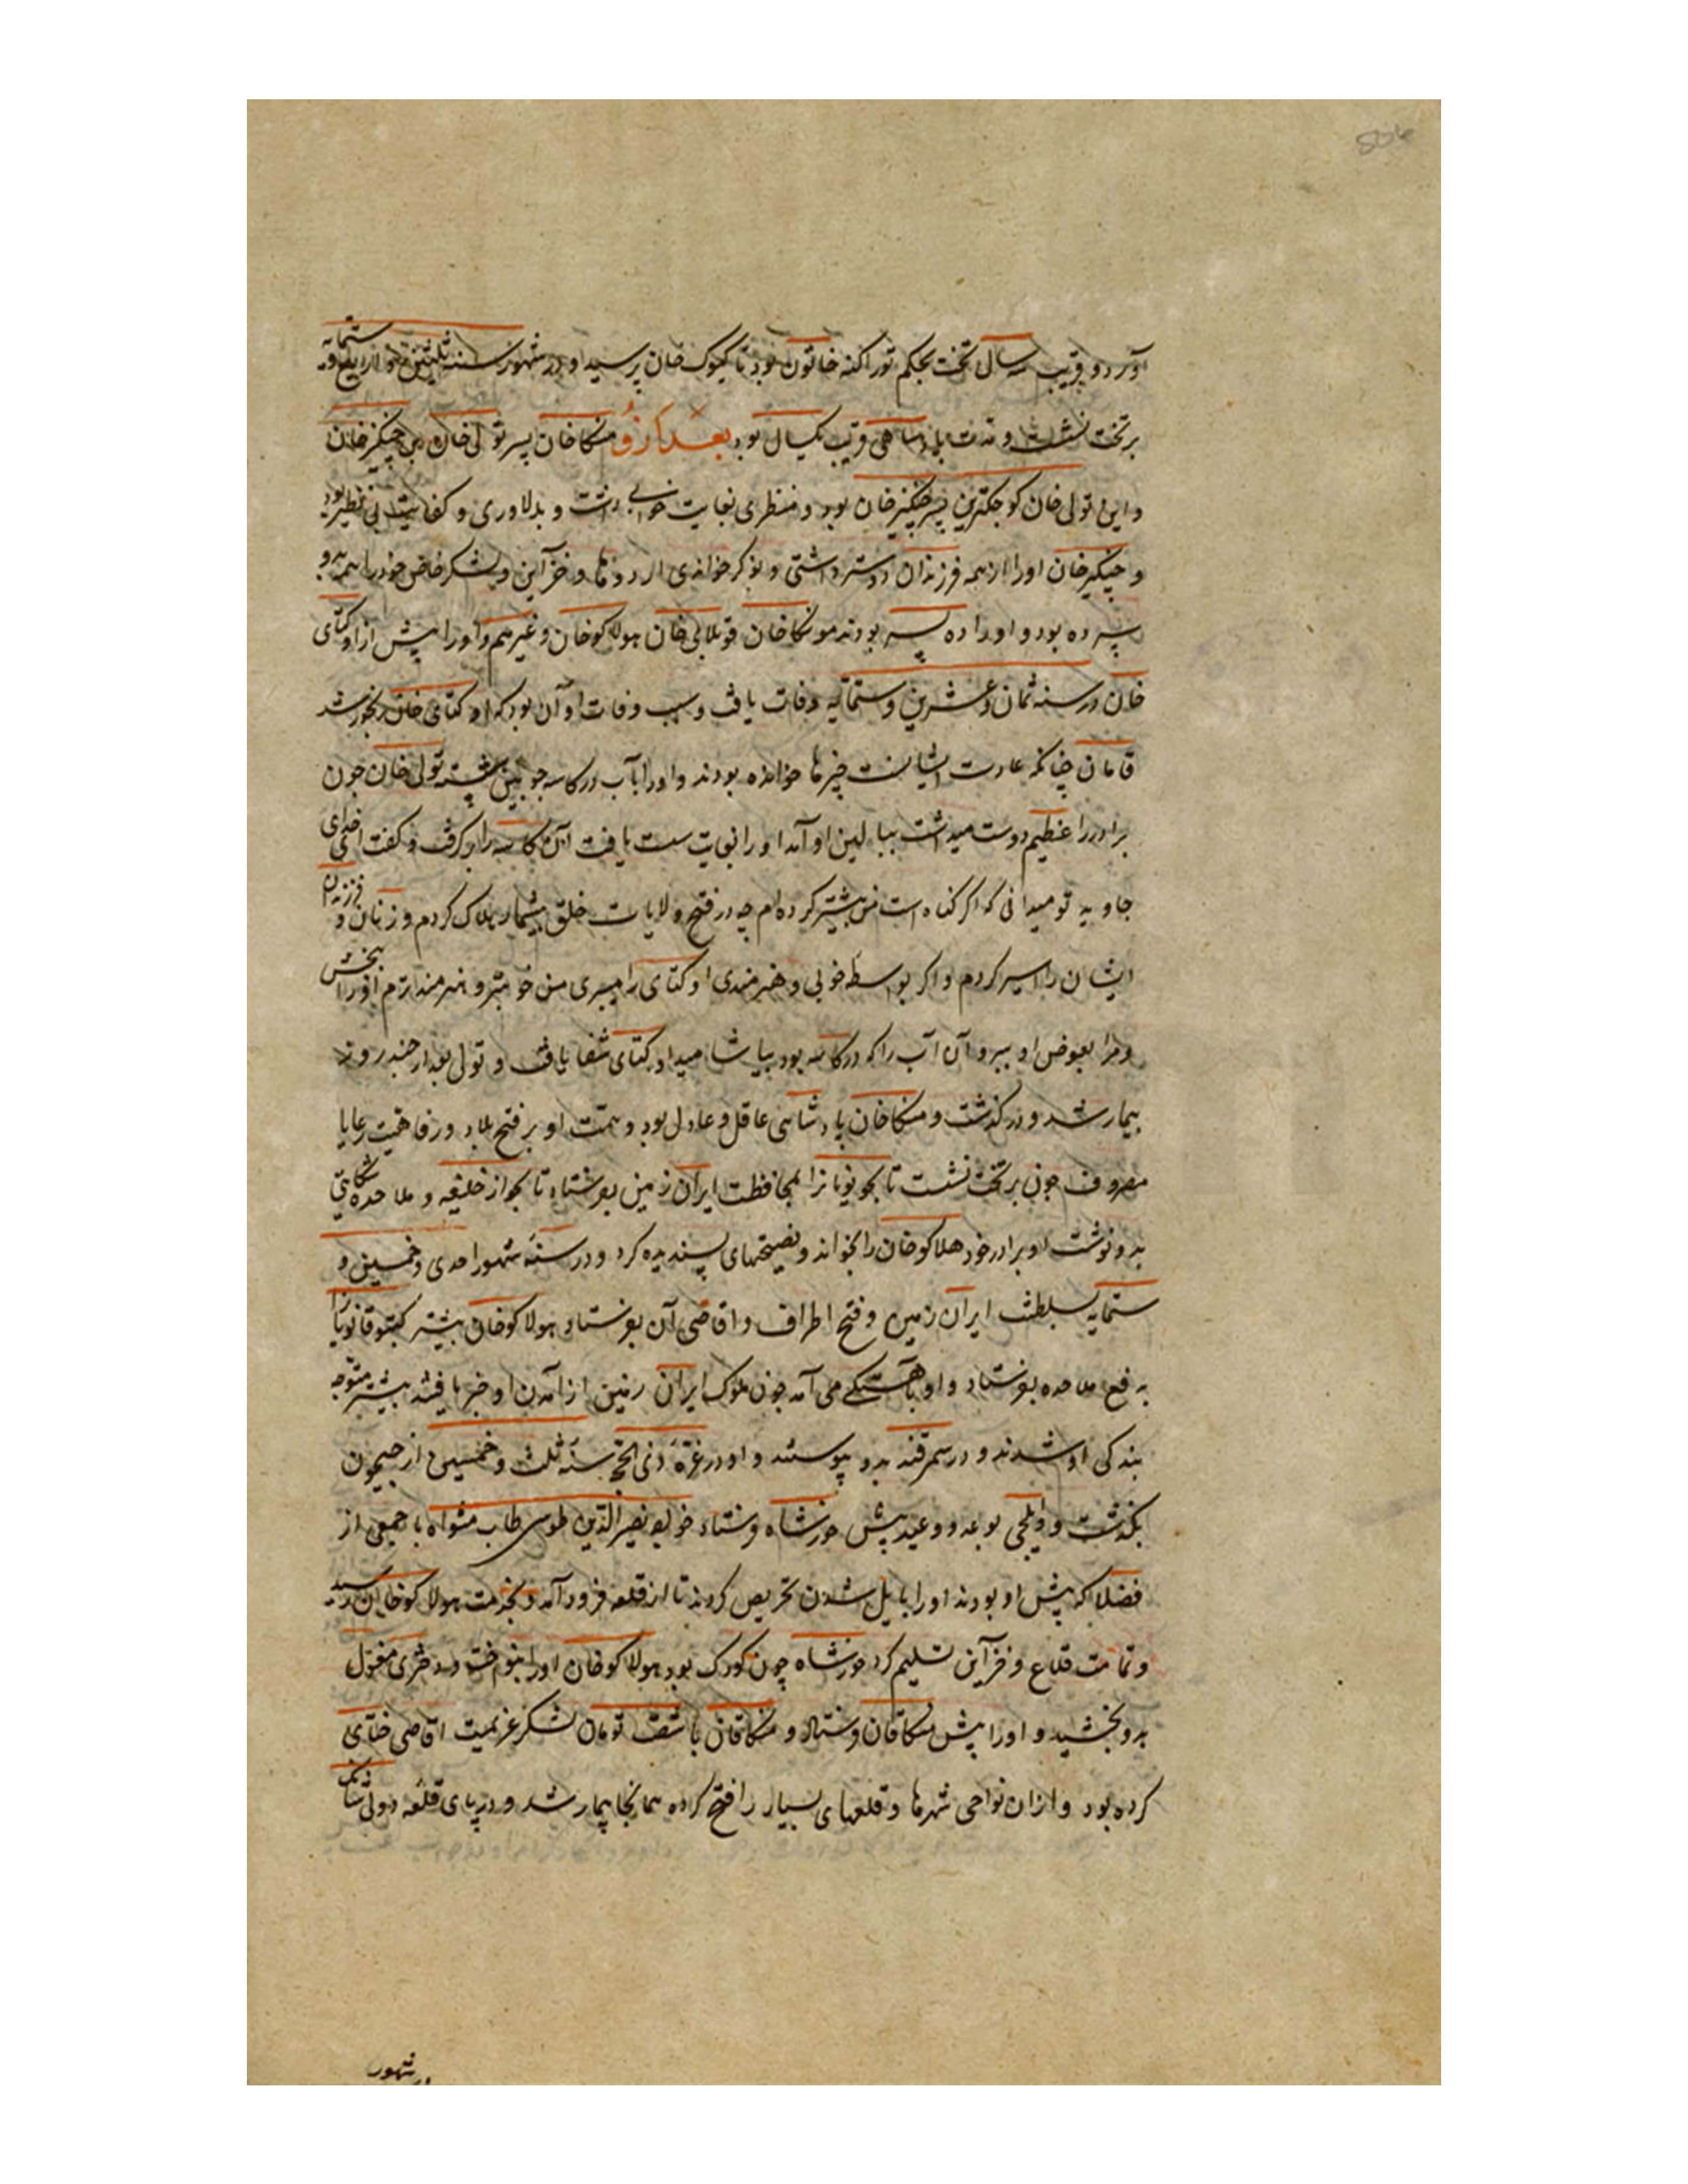 آورد و قریب سه سال تخت بحکم توراکنه خاتون بود تا کیوک خان برسید او در شهور سنه ستمایه
بر تخت نشست و مدت پادشاهی قریب یکسال بود بعد از و منکاخان پسر تولی خان بن چنکیز خان
و این تولی خان کوچکترین پسر چنکیز خان بود و منظری بغایت خوب داشت و بدلاوری و کفایت بی نظیر بود
و چنکیز خان او را از همه فرزندان دوستر داشتی و نوکر خواندی اردوها و خزاین و لشکر خاص خود را همه بدو
سپرده بود و او را ده پسر بودند مونکاخان قوبلای خان هولاکوخان و غیرهم و او را پیش از اوکتای
خان در سنه ثمان و عشرین و ستمائیه وفات یافت و سبب وفات او آن بود که اوکتای خان رنجور شد
قامان چنانکه عادت ایشانست چیزها خوانده بودند و او را بآب در کاسه چوبین شسته تولی خان چون
برادر را عظیم دوست میداشت ببالین او آمد او را بغایت سست یافت آن کاسه را برکرفت و کفت ای خدای
جاوید تو میدانی که اکر کناه است من بیشتر کرده ام چه در فتح ولایات خلق بیشمار هلاک کردم و زنان و فرزندان
ایشان را اسیر کردم و اکر بواسطه خوبی و هنرمندی اوکتای را میبری من خوبتر و هنرمندترم او را ببخش
و مرا بعوض او ببر و آن آب را که در کاسه بود بیاشامید اوکتای شفا یافت و تولی بعد از چند روز
بیمار شد و درکذشت و منکاخان پادشاهی عاقل و عادل بود و همت او بر فتح بلاد و رفاهیت رعایا
مصروف چون بر تخت نشست تایجو نویانرا بمحافظت ایران زمین بفرستاد تایجو از خلیفه و ملاحده شکایتی
بدو نوشت او برادر خود هلاکوخان را بخواند و نصیحتهای پسندیده کرد و در سنه شهور احدی و خمسین و
ستمایه بسلطنت ایران زمین و فتح اطراف و اقاصی آن بفرستاد هولاکوخان پیشتر کیتبوقا نویانرا
به فع ملاحده بفرستاد و او بآهستکی می آمد چون ملوک ایران زمین از آمدن او خبر یافتند پیشتر متوجه
بندکی او شدند و در سمرقند بدو پیوستند و او در غره ذی الحجه سنه ثلث و خمسین از جیحون
بکذشت و ایلچی بوعد و وعید پیش خورشاه فرستاد خواجه نصیر الدین طوسی طاب مثواه با جمعی از
فضلا که پیش او بودند او را بایل شدن تحریص کردند تا از قلعه فرود آمد و بخدمت هولاکوخان رسید
و تمامت قلاع و خزاین تسلیم کرد خورشاه چون کودک بود هولاکوخان او را بنواخت و دختری مغول
بدو بخشید و او را پیش منکاقان فرستاد و منکاقان با شصت تومان لشکر عزیمت اقاصی ختای
کرده بود و از ان نواحی شهرها و قلعهای بسیار را فتح کرده همانجا بیمار شد و در پای قلعه
در شهور